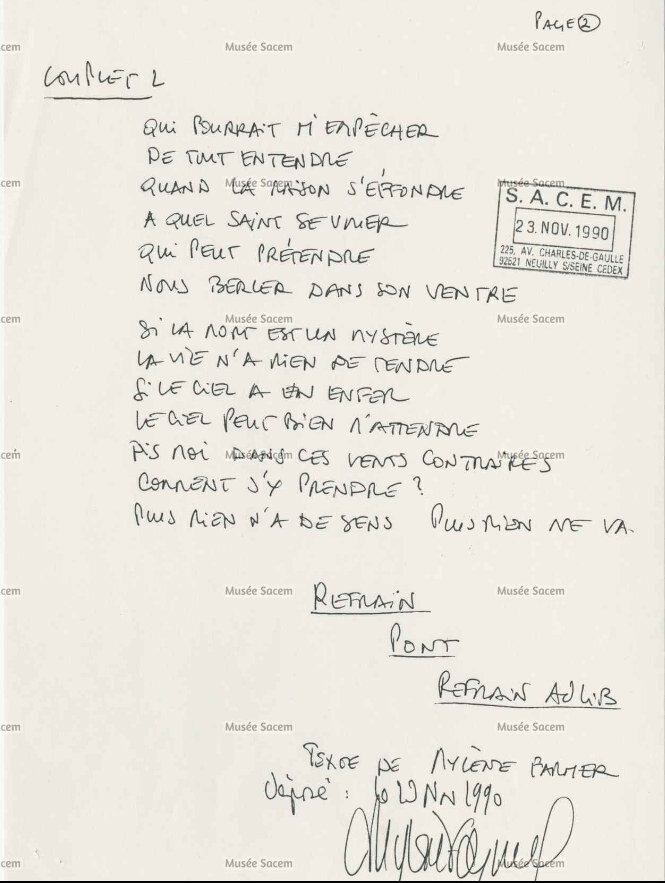 PAGE 2
COUPLET 2
QUI POURRAIT M'EMPÊCHER
DE TOUT ENTENDRE
QUAND LA MAISON S'EFFONDRE
A QUEL SAINT SE VOUER
QUI PEUT PRÉTENDRE
NOUS BERCER DANS SON VENTRE
S. A. C. E. M.
23. NOV. 1990
225, AV. CHARLES-DE-GAULLE
92521 NEUILLY S/SEINE CEDEX
SI LA MORT EST UN MYSTÈRE
LA VIE N'A RIEN DE TENDRE
SI LE CIEL A UN ENFER
LE CIEL PEUT BIEN M'ATTENDRE
DIS MOI DANS CES VENTS CONTRAIRES
COMMENT S'Y PRENDRE ?
PLUS RIEN N'A DE SENS PLUS RIEN NE VA.
REFRAIN
PONT
REFRAIN AD LIB
TEXTE DE MYLÈNE FARMER
Déposé : le 23 NOV 1990
Musée Sacem